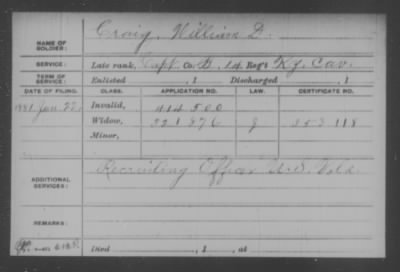 NAME OF SOLDIER: Craig, William D.
SERVICE: Late rank, Capt Co. B, 14 Reg't Ky. Cav.
TERM OF SERVICE: Enlisted , 1 Discharged , 1
DATE OF FILING. CLASS. APPLICATION NO. LAW. CERTIFICATE NO.
1881 Jan. 22. Invalid, 414 500
Widow, 221 876 353 118
Minor,
ADDITIONAL SERVICES: Recruiting Officer U.S. Vols
REMARKS:
Died , 1 , at